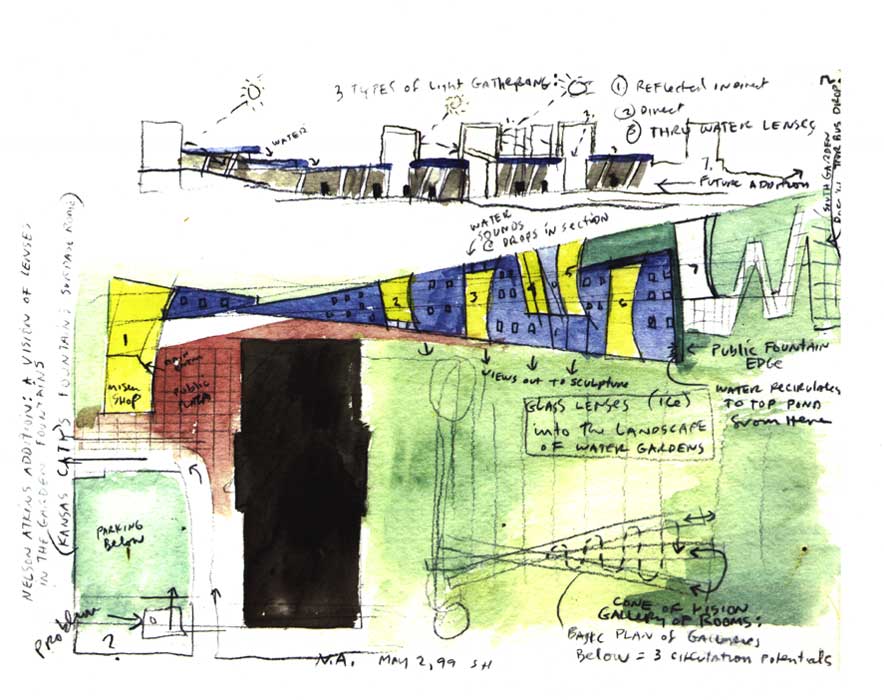 3 TYPES OF LIGHT GATHERING:
① REFLECTED INDIRECT
② DIRECT
③ THRU WATER LENSES
WATER
1.
3.
7.
FUTURE ADDITION
SOUTH GARDEN
BUS DROP?
WATER
SOUNDS
@ DROPS IN SECTION
1
2
3
4
5
6
7
MUSEUM
SHOP
MAIN
PUBLIC
PLAZA
VIEWS OUT TO SCULPTURE
PUBLIC FOUNTAIN
EDGE
WATER RECIRCULATES
TO TOP POND
FROM HERE
GLASS LENSES (ICE)
INTO THE LANDSCAPE
OF WATER GARDENS
NELSON ATKINS ADDITION: A VISION OF LENSES
IN THE GARDEN FOUNTAINS
(KANSAS CITY'S FOUNTAINS SURPASS ROME)
PARKING
BELOW
PROBLEM
?
CONE OF VISION
GALLERY OF ROOMS:
BASIC PLAN OF GALLERIES
BELOW = 3 CIRCULATION POTENTIALS
N.A. MAY 2, 99 SH